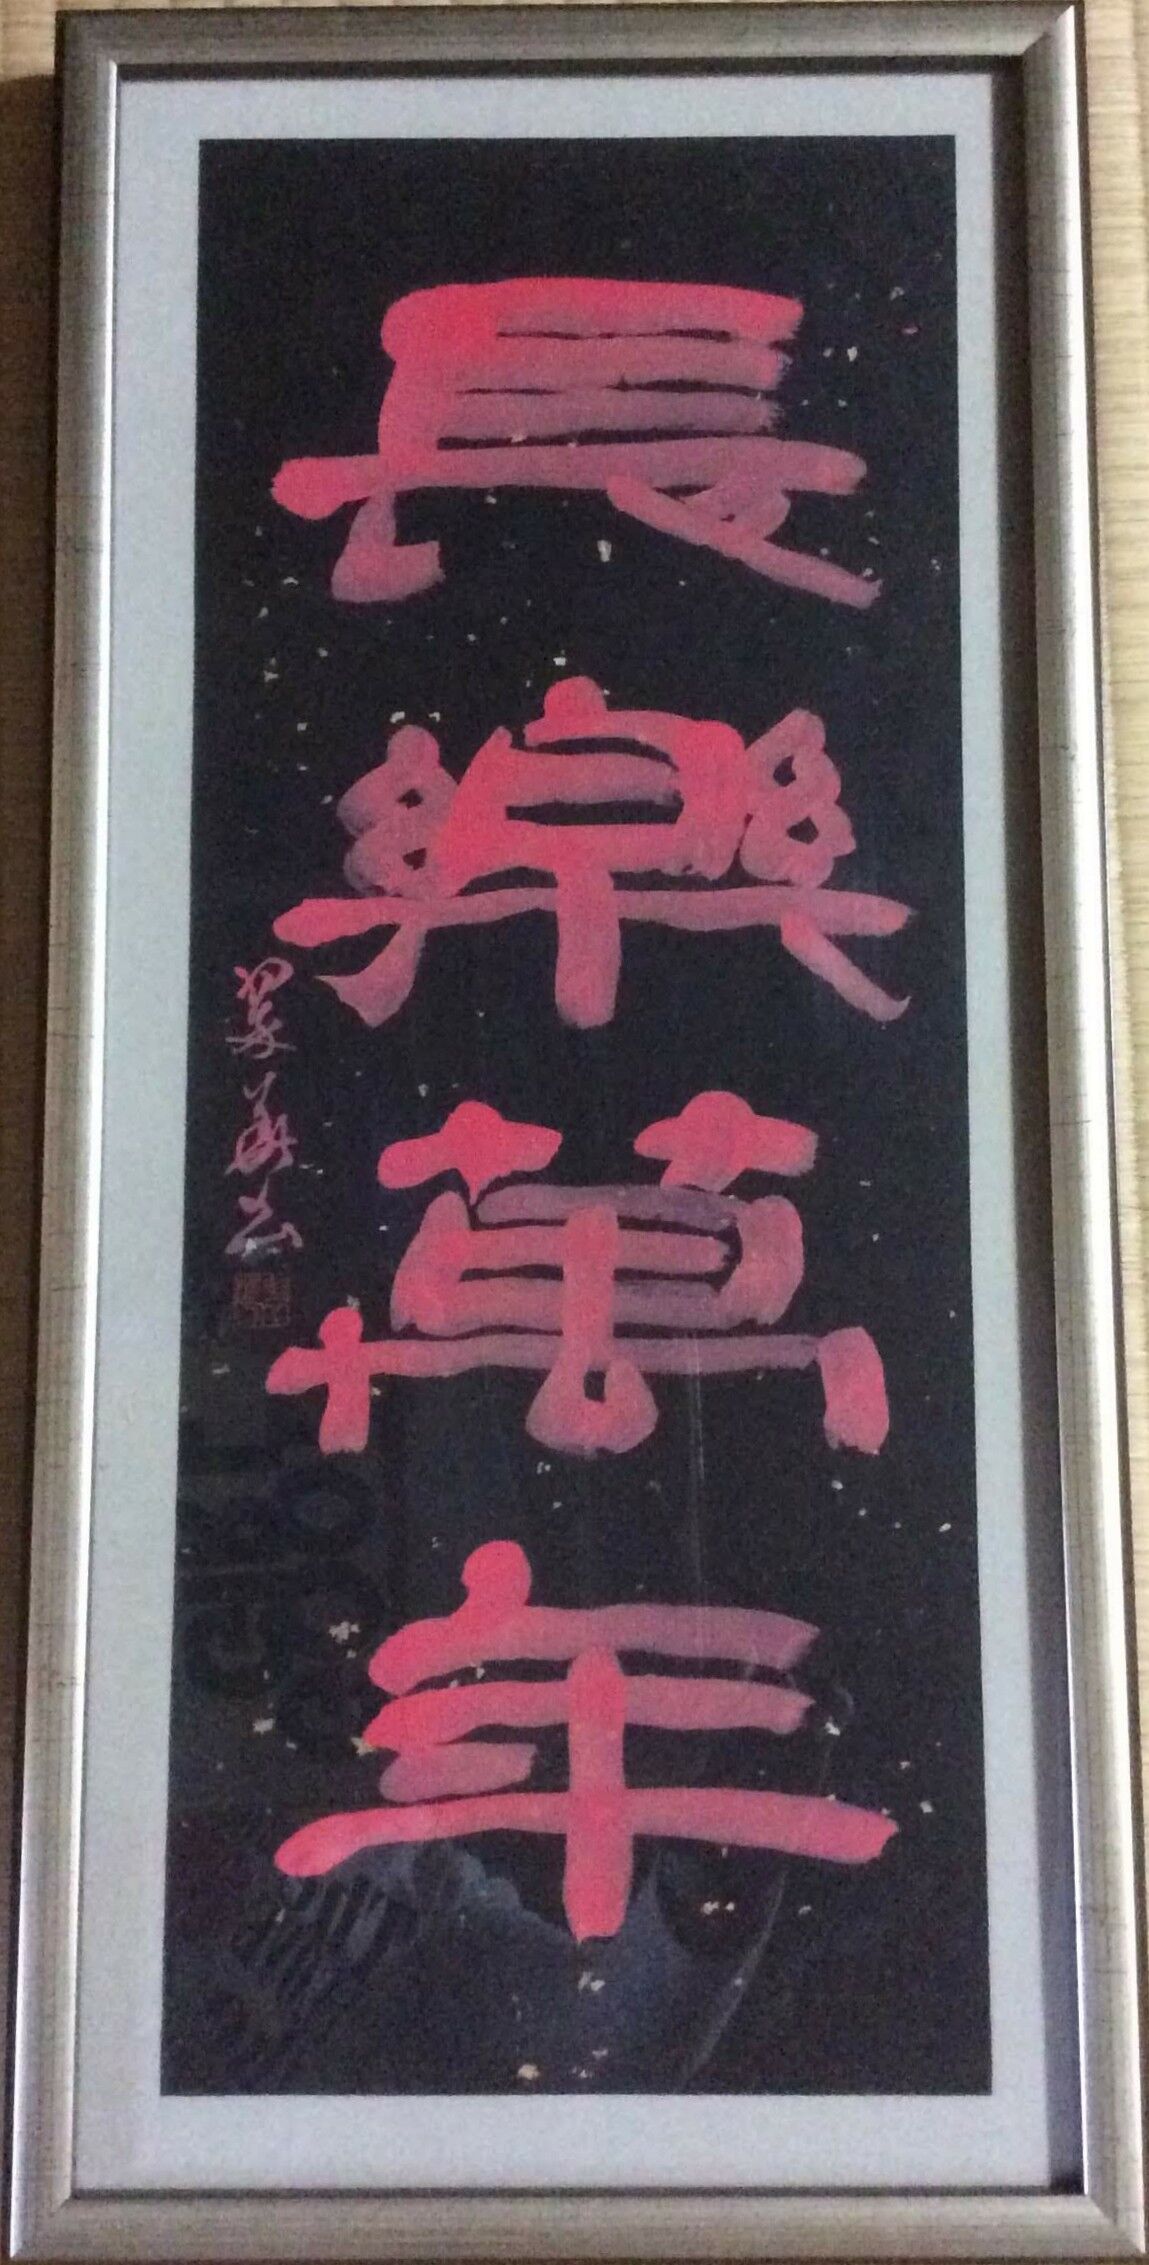 長樂萬年